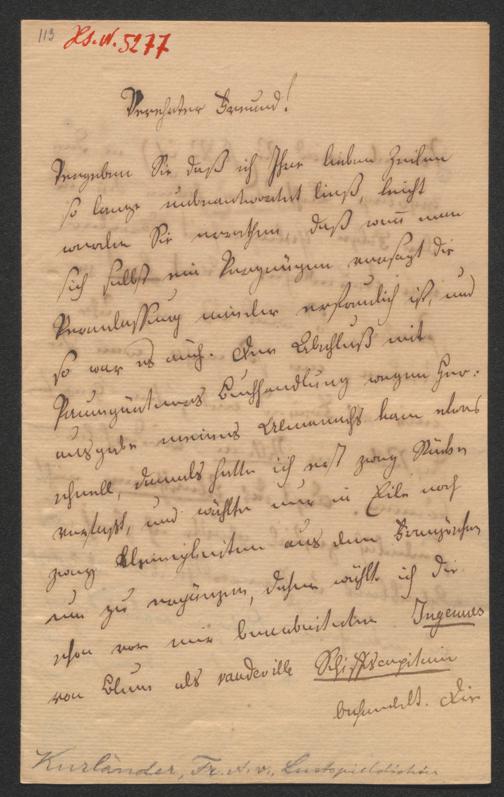 113
Hs. N. 5277
Verehrter Freund!
Vergeben Sie daß ich Ihre lieben Zeilen
so lange unbeantwortet ließ, leicht
werden Sie errathen daß wenn man
sich selbst ein Vergnügen versagt die
Veranlassung minder erfreulich ist, und
so war es auch. Der Abschluß mit
Baumgärtners Buchhandlung wegen Her:
ausgabe meines Almanachs kam etwas
schnell, damals hatte ich erst zwey Stücke
verfaßt, und wählte nur in Eile noch
zwey Kleinigkeiten aus dem Französischen
um zu ergänzen, daher wählt ich die
schon vor mir bearbeiteten Ingenues
von Blum als vaudeville Schiffscapitain
behandelt. Die
Kurländer, Fr. A. v., Lustspieldichter